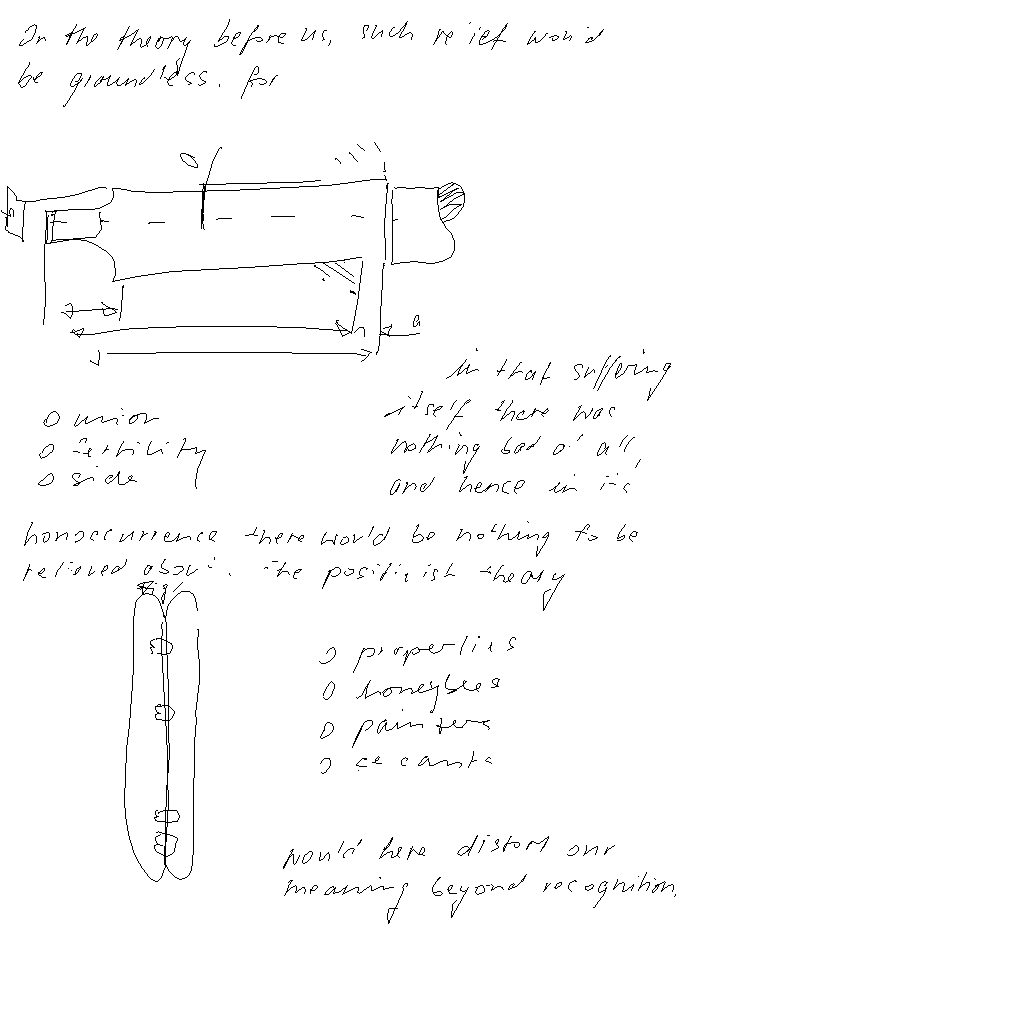 On the theory before us, such relief would
be groundless. for
a
in that suffering
itself there was
nothing bad at all,
and hence in its
union
fertility
side
nonoccurrence there would be nothing to be
relieved about. The positivist theory
Fig
properties
honeybees
painters
secants
would here distort our
meaning beyond recognition.